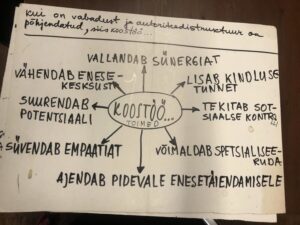 KUI on VABADUST ja
põhjendatud, siis KOOSTÖÖ...
VALLANDAB SÜNERGIAT
VÄHENDAB ENESE-
KESKSUST
LISAB KINDLUSE
TUNNET
SUURENDAB
POTENTSIAALI
KOOSTÖÖ...
TOIMED
TEKITAB SOT-
SIAALSE KONTRO
SÜVENDAB EMPAATIAT
VÕIMALDAB SPETSIALISEE-
RUDA
AJENDAB PIDEVALE ENESETÄIENDAMISELE